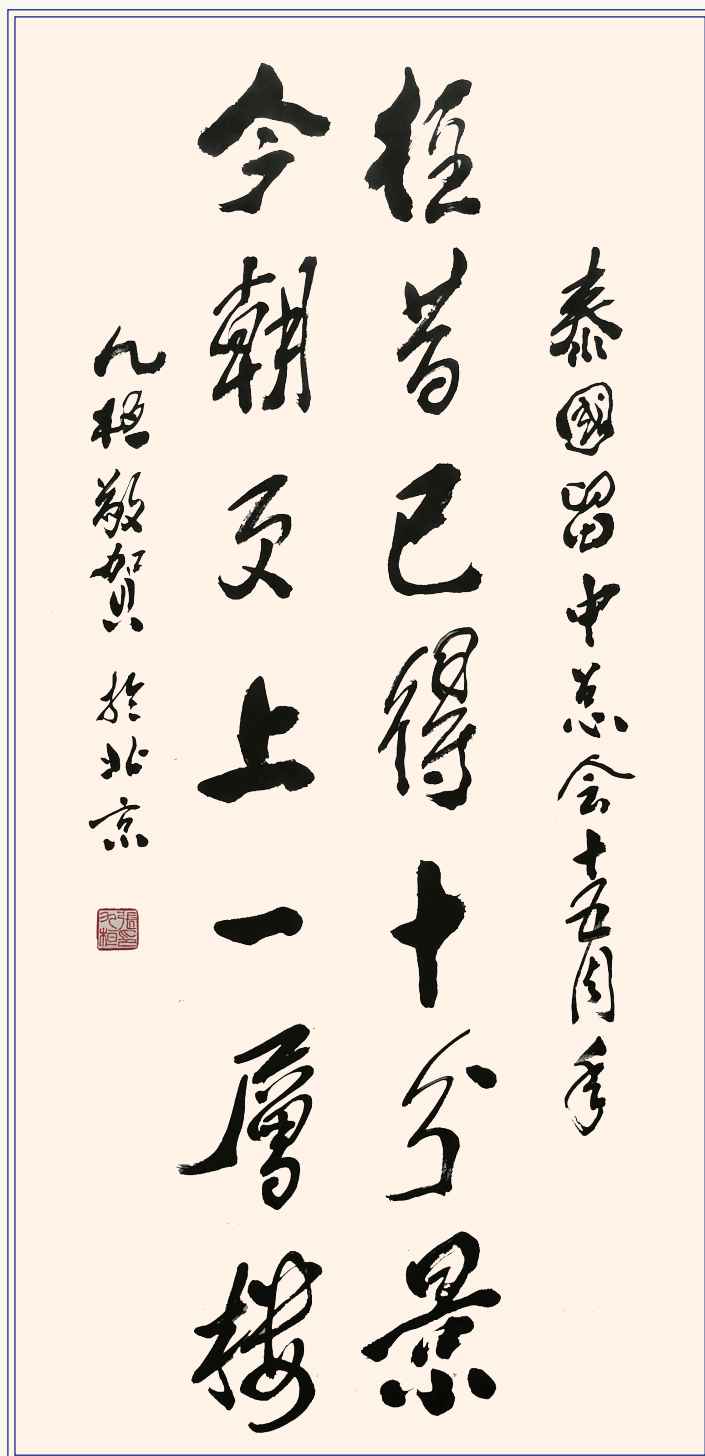 泰國留中总会十五周年
往昔已得十分景
今朝更上一層樓
九桓敬賀 於北京
張印九桓